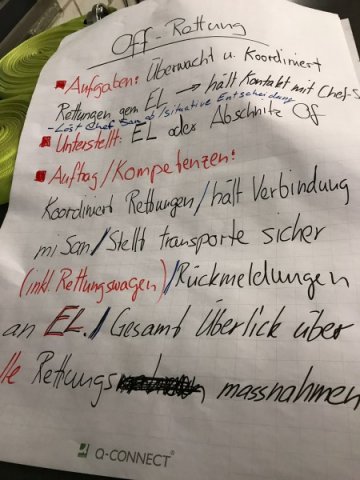 Off - Rettung
Aufgaben: Überwacht u. Koordiniert
Rettungen gem EL → hält Kontakt mit Chef-S
- Löst Chef San ab / situative Entscheidung
Unterstellt: EL oder Abschnitts Of
Auftrag / Kompetenzen:
Koordiniert Rettungen / hält Verbindung
mi San / Stellt transporte sicher
(inkl. Rettungswagen) / Rückmeldungen
an EL. / Gesamt Überlick über
lle Rettungs massnahmen
Q-CONNECT®